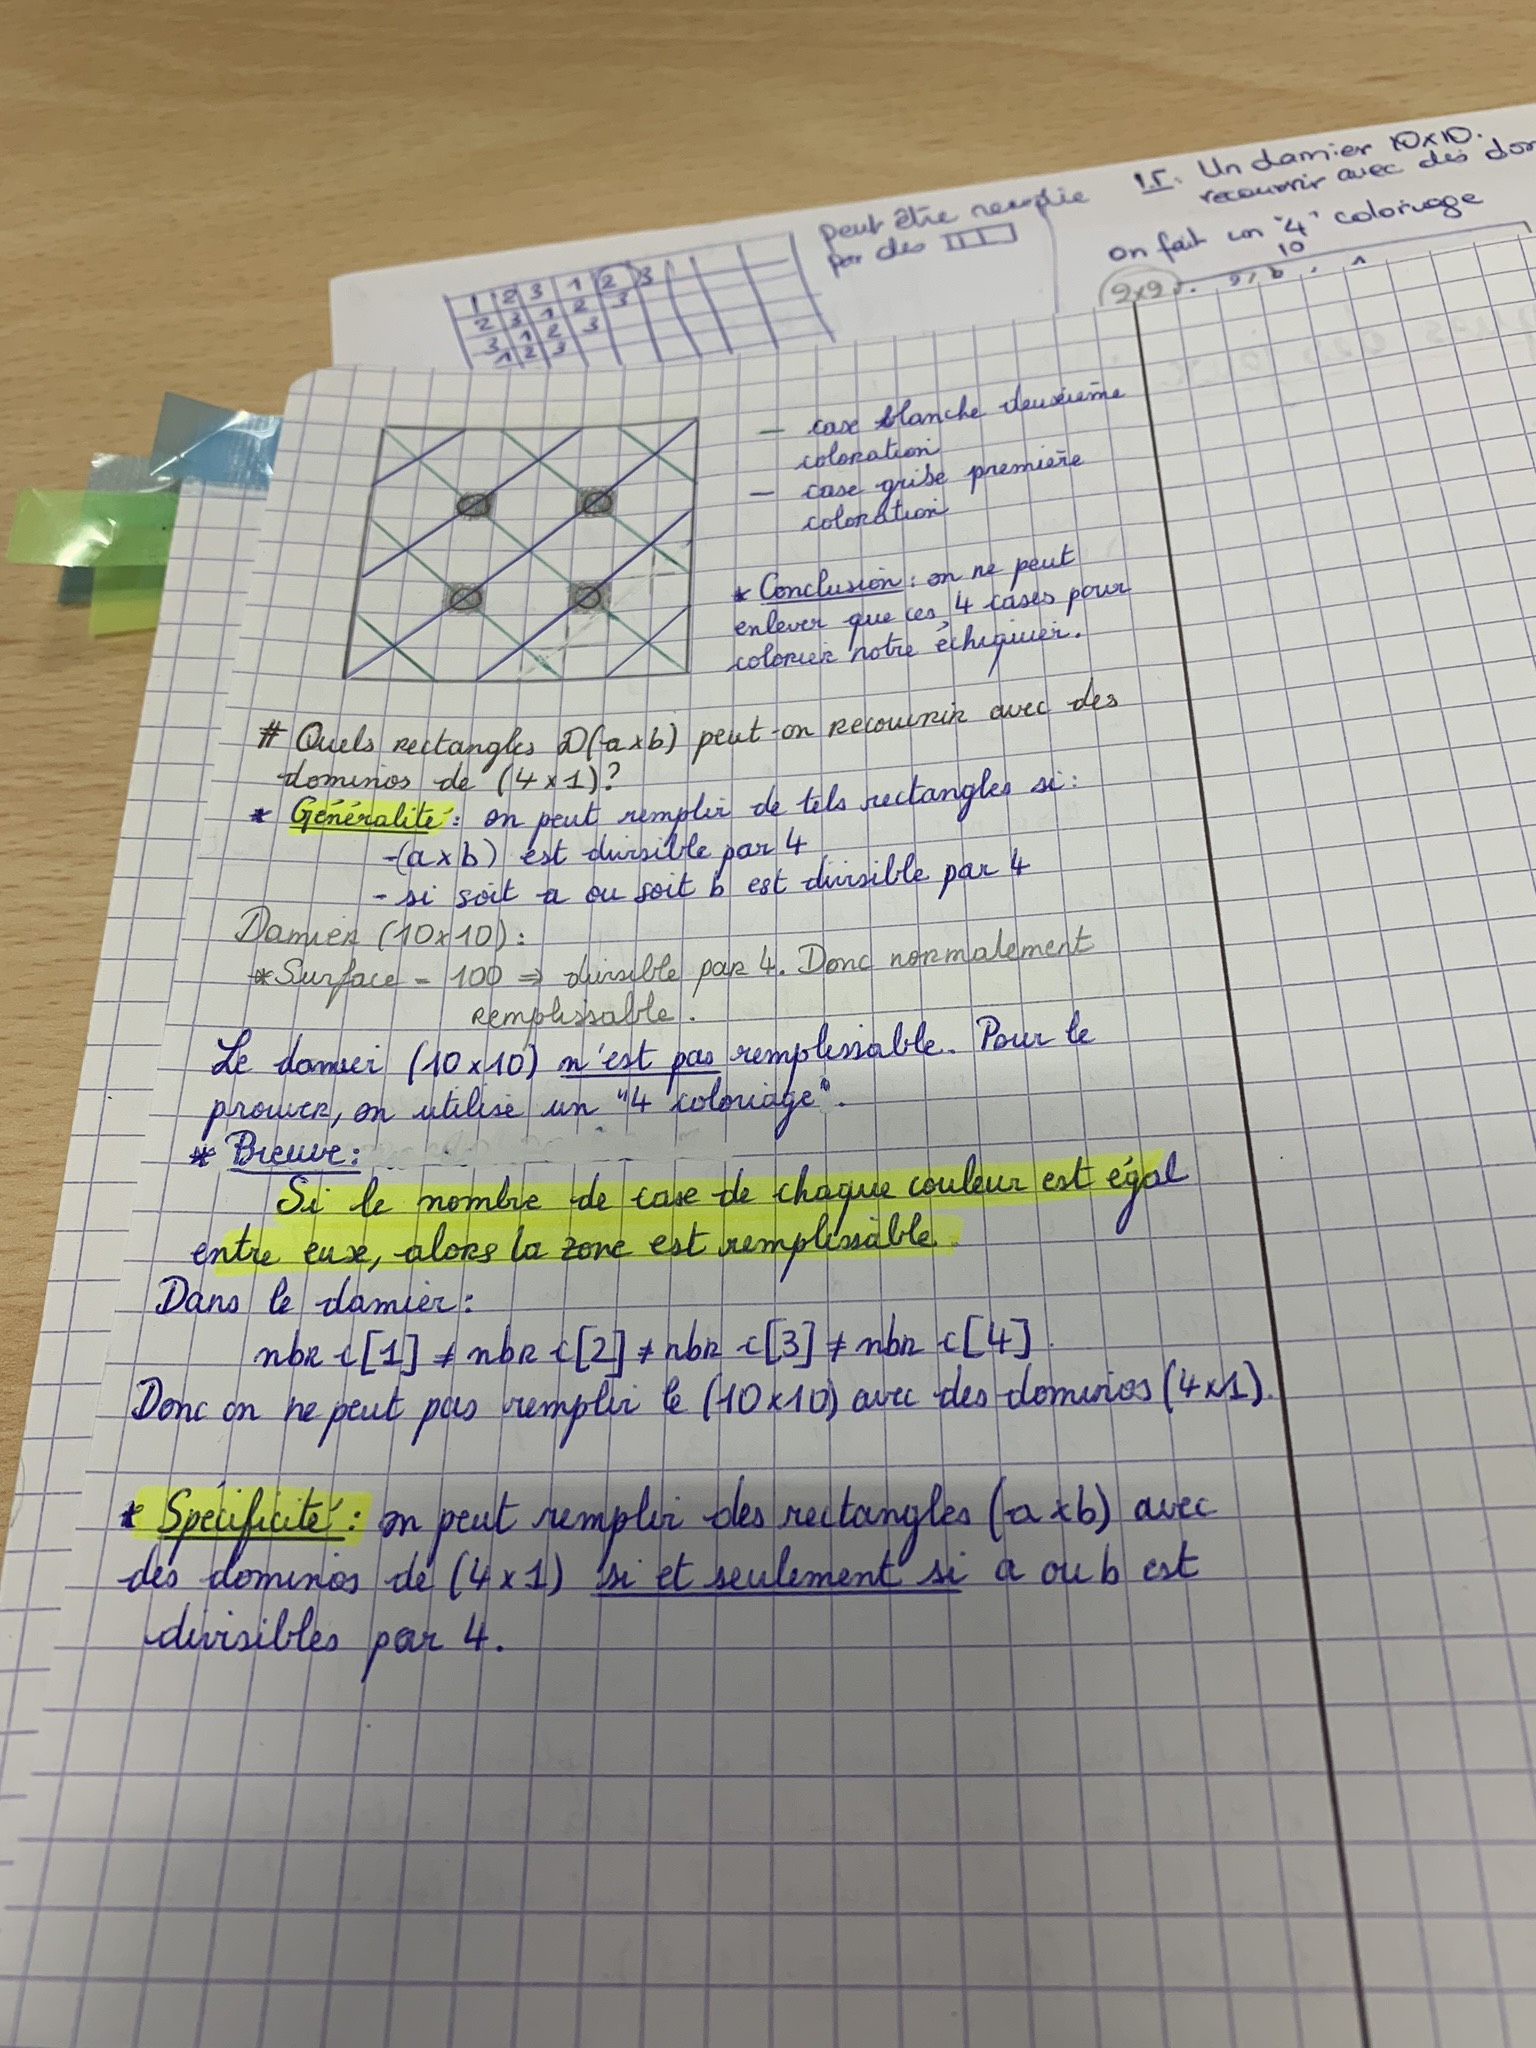 peut être remplie
par des
1 2 3 1 2 3
2 3 1 2 3
3 1 2 3
1 2 3
15. Un damier 10x10.
recouvrir avec des
on fait un "4" coloriage
10
9x9
— case blanche deuxième
coloration
— case grise première
coloration
* Conclusion : on ne peut
enlever que ces 4 cases pour
colorier notre échiquier.
# Quels rectangles D(axb) peut-on recouvrir avec des
dominos de (4x1)?
* Généralité : on peut remplir de tels rectangles si :
-(axb) est divisible par 4
- si soit a ou soit b est divisible par 4
Damier (10x10) :
*Surface = 100 => divisible par 4. Donc normalement
remplissable.
Le damier (10x10) n'est pas remplissable. Pour le
prouver, on utilise un "4 coloriage".
* Preuve :
Si le nombre de case de chaque couleur est égal
entre eux, alors la zone est remplissable.
Dans le damier :
nbr c[1] ≠ nbr c[2] ≠ nbr c[3] ≠ nbr c[4].
Donc on ne peut pas remplir le (10x10) avec des dominos (4x1).
* Spécificité : on peut remplir des rectangles (axb) avec
des dominos de (4x1) si et seulement si a ou b est
divisibles par 4.